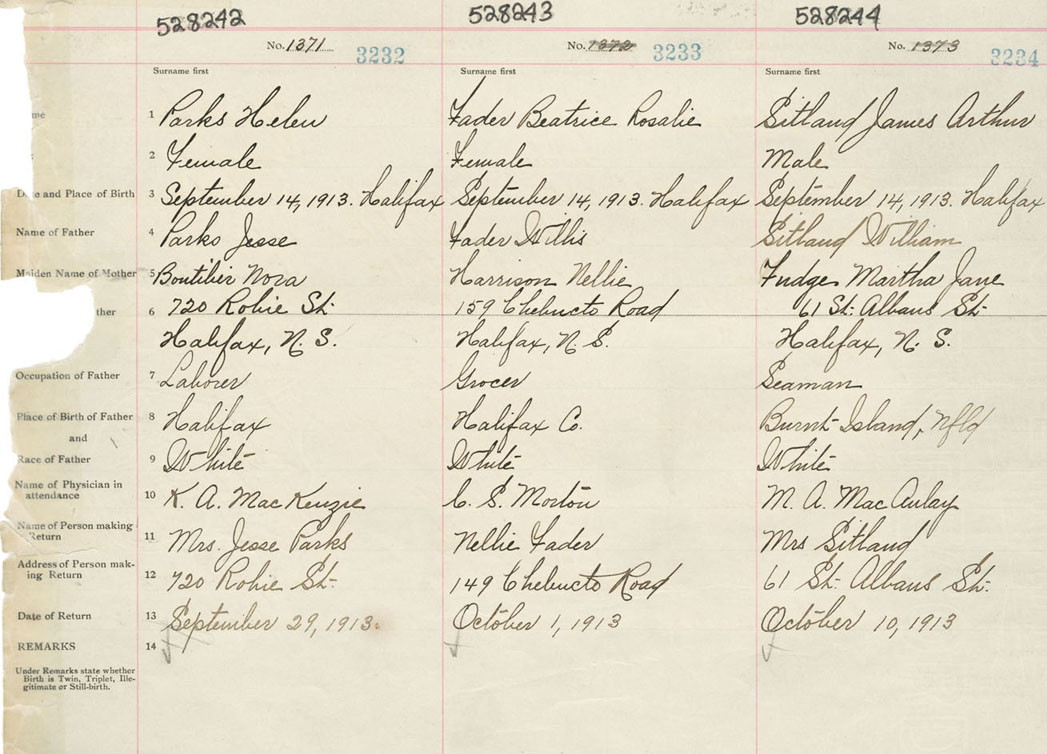 528242 528243 528244
No. 1371 3232 No. 1372 3233 No. 1373 3234
Surname first Surname first Surname first
me 1 Parks Helen Fader Beatrice Rosalie Sitland James Arthur
2 Female Female Male
Date and Place of Birth 3 September 14, 1913. Halifax September 14, 1913. Halifax September 14, 1913. Halifax
Name of Father 4 Parks Jesse Fader Willis Sitland William
Maiden Name of Mother 5 Boutilier Nora Harrison Nellie Fudge Martha Jane
ther 6 720 Robie St. 159 Chebucto Road 61 St. Albans St.
Halifax, N. S. Halifax, N. S. Halifax, N. S.
Occupation of Father 7 Laborer Grocer Seaman
Place of Birth of Father 8 Halifax Halifax Co. Burnt Island, Nfld
and
Race of Father 9 White White White
Name of Physician in
attendance 10 K. A. MacKenzie C. S. Morton M. A. MacAulay
Name of Person making
Return 11 Mrs. Jesse Parks Nellie Fader Mrs Sitland
Address of Person mak-
ing Return 12 720 Robie St. 149 Chebucto Road 61 St. Albans St.
Date of Return 13 September 29, 1913. October 1, 1913 October 10, 1913
REMARKS 14
Under Remarks state whether
Birth is Twin, Triplet, Ille-
gitimate or Still-birth.